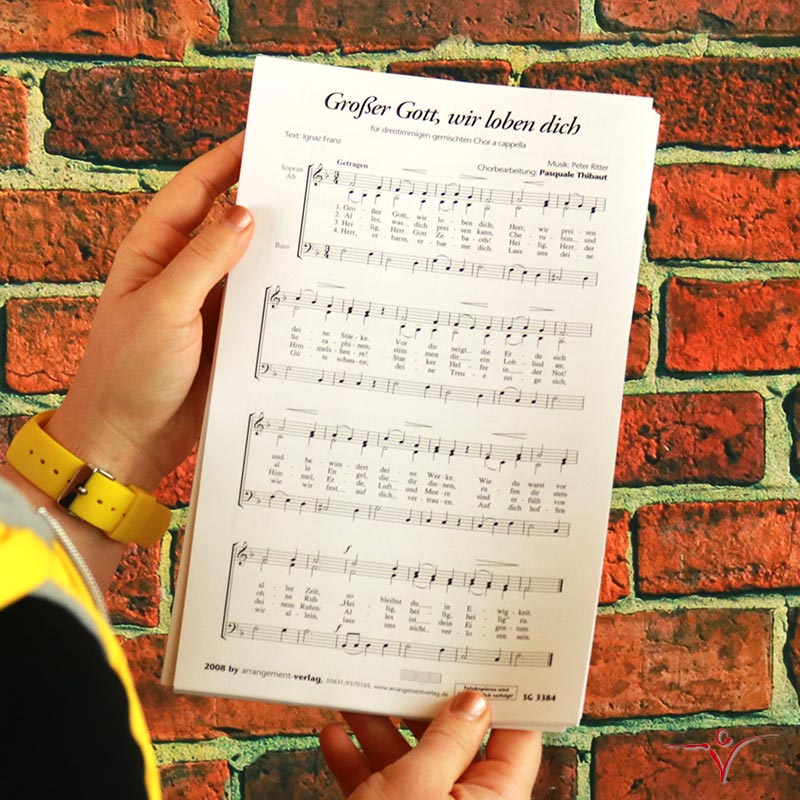 Großer Gott, wir loben dich
für dreistimmigen gemischten Chor a cappella
Text: Ignaz Franz
Musik: Peter Ritter
Chorbearbeitung: Pasquale Thibaut
Getragen
Sopran
Alt
1. Gro - ßer Gott, wir lo - ben dich; Herr, wir prei - sen
2. Al - les, was dich prei - sen kann, Che - ru - bim und
3. Hei - lig, Herr Gott Ze - ba - oth! Hei - lig, Herr der
4. Herr, er - barm, er - bar - me dich. Lass uns dei - ne
Bass
dei - ne Stär - ke. Vor dir neigt die Er - de sich
Se - ra - phi - nen, stim - men dir ein Lob - lied an;
Him - mels - hee - re! Star - ker Hel - fer in der Not!
Gü - te schau - en; dei - ne Treu - e zei - ge sich,
und be - wun - dert dei - ne Wer - ke. Wie du warst vor
al - le En - gel, die dir die - nen, ru - fen dir stets
Him - mel, Er - de, Luft und Mee - re sind er - füllt von
wie wir fest auf dich ver - trau - en. Auf dich hof - fen
f
al - ler Zeit, so bleibst du in E - wig - keit.
oh - ne Ruh „Hei - lig, hei - lig, hei - lig“ zu.
dei - nem Ruhm: Al - les ist dein Ei - gen - tum.
wir al - lein, lass uns nicht ver - lo - ren sein.
f
2008 by arrangement-verlag, 05631/9370105, www.arrangementverlag.de
Fotokopieren wird
verfolgt!
SG 3384